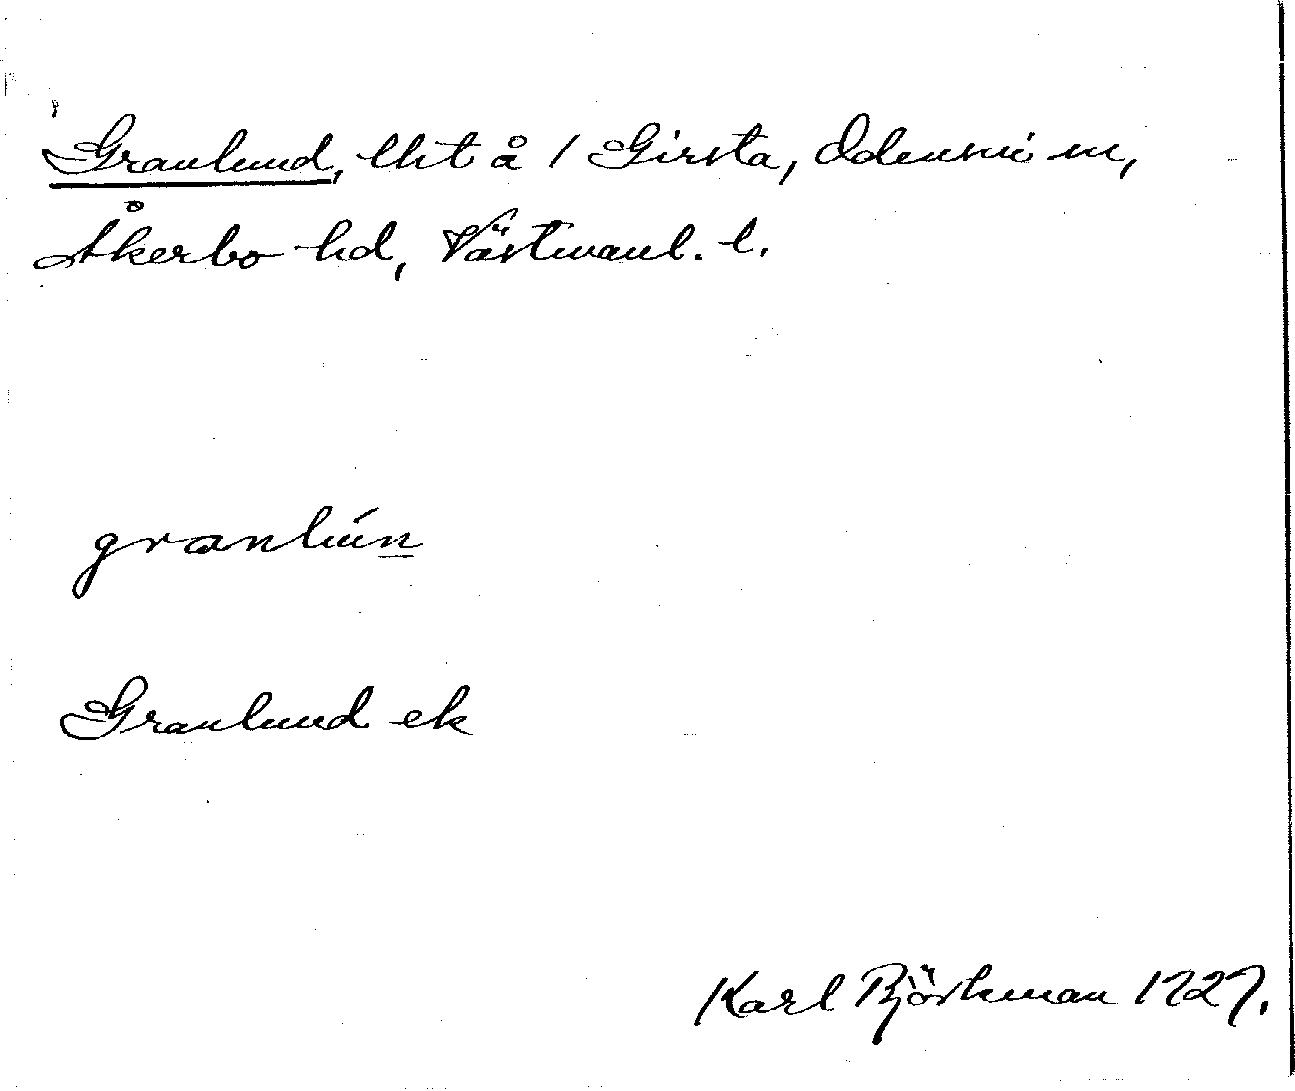 Granlund, lht å 1 Girsta, Odensvi sn,
Åkerbo hd, Västmanl. l.
granlún
Granlund ek
Karl Björkman 1927.